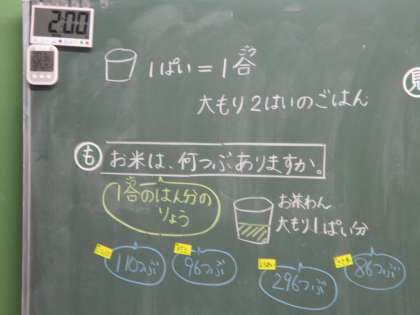 2:00
1ぱい=1合
ゴウ
大もり2はいのごはん
も
お米は、何つぶありますか。
1合のはん分の
りょう
お茶わん
大もり1ぱい分
110つぶ
96つぶ
296つぶ
86つぶ
見